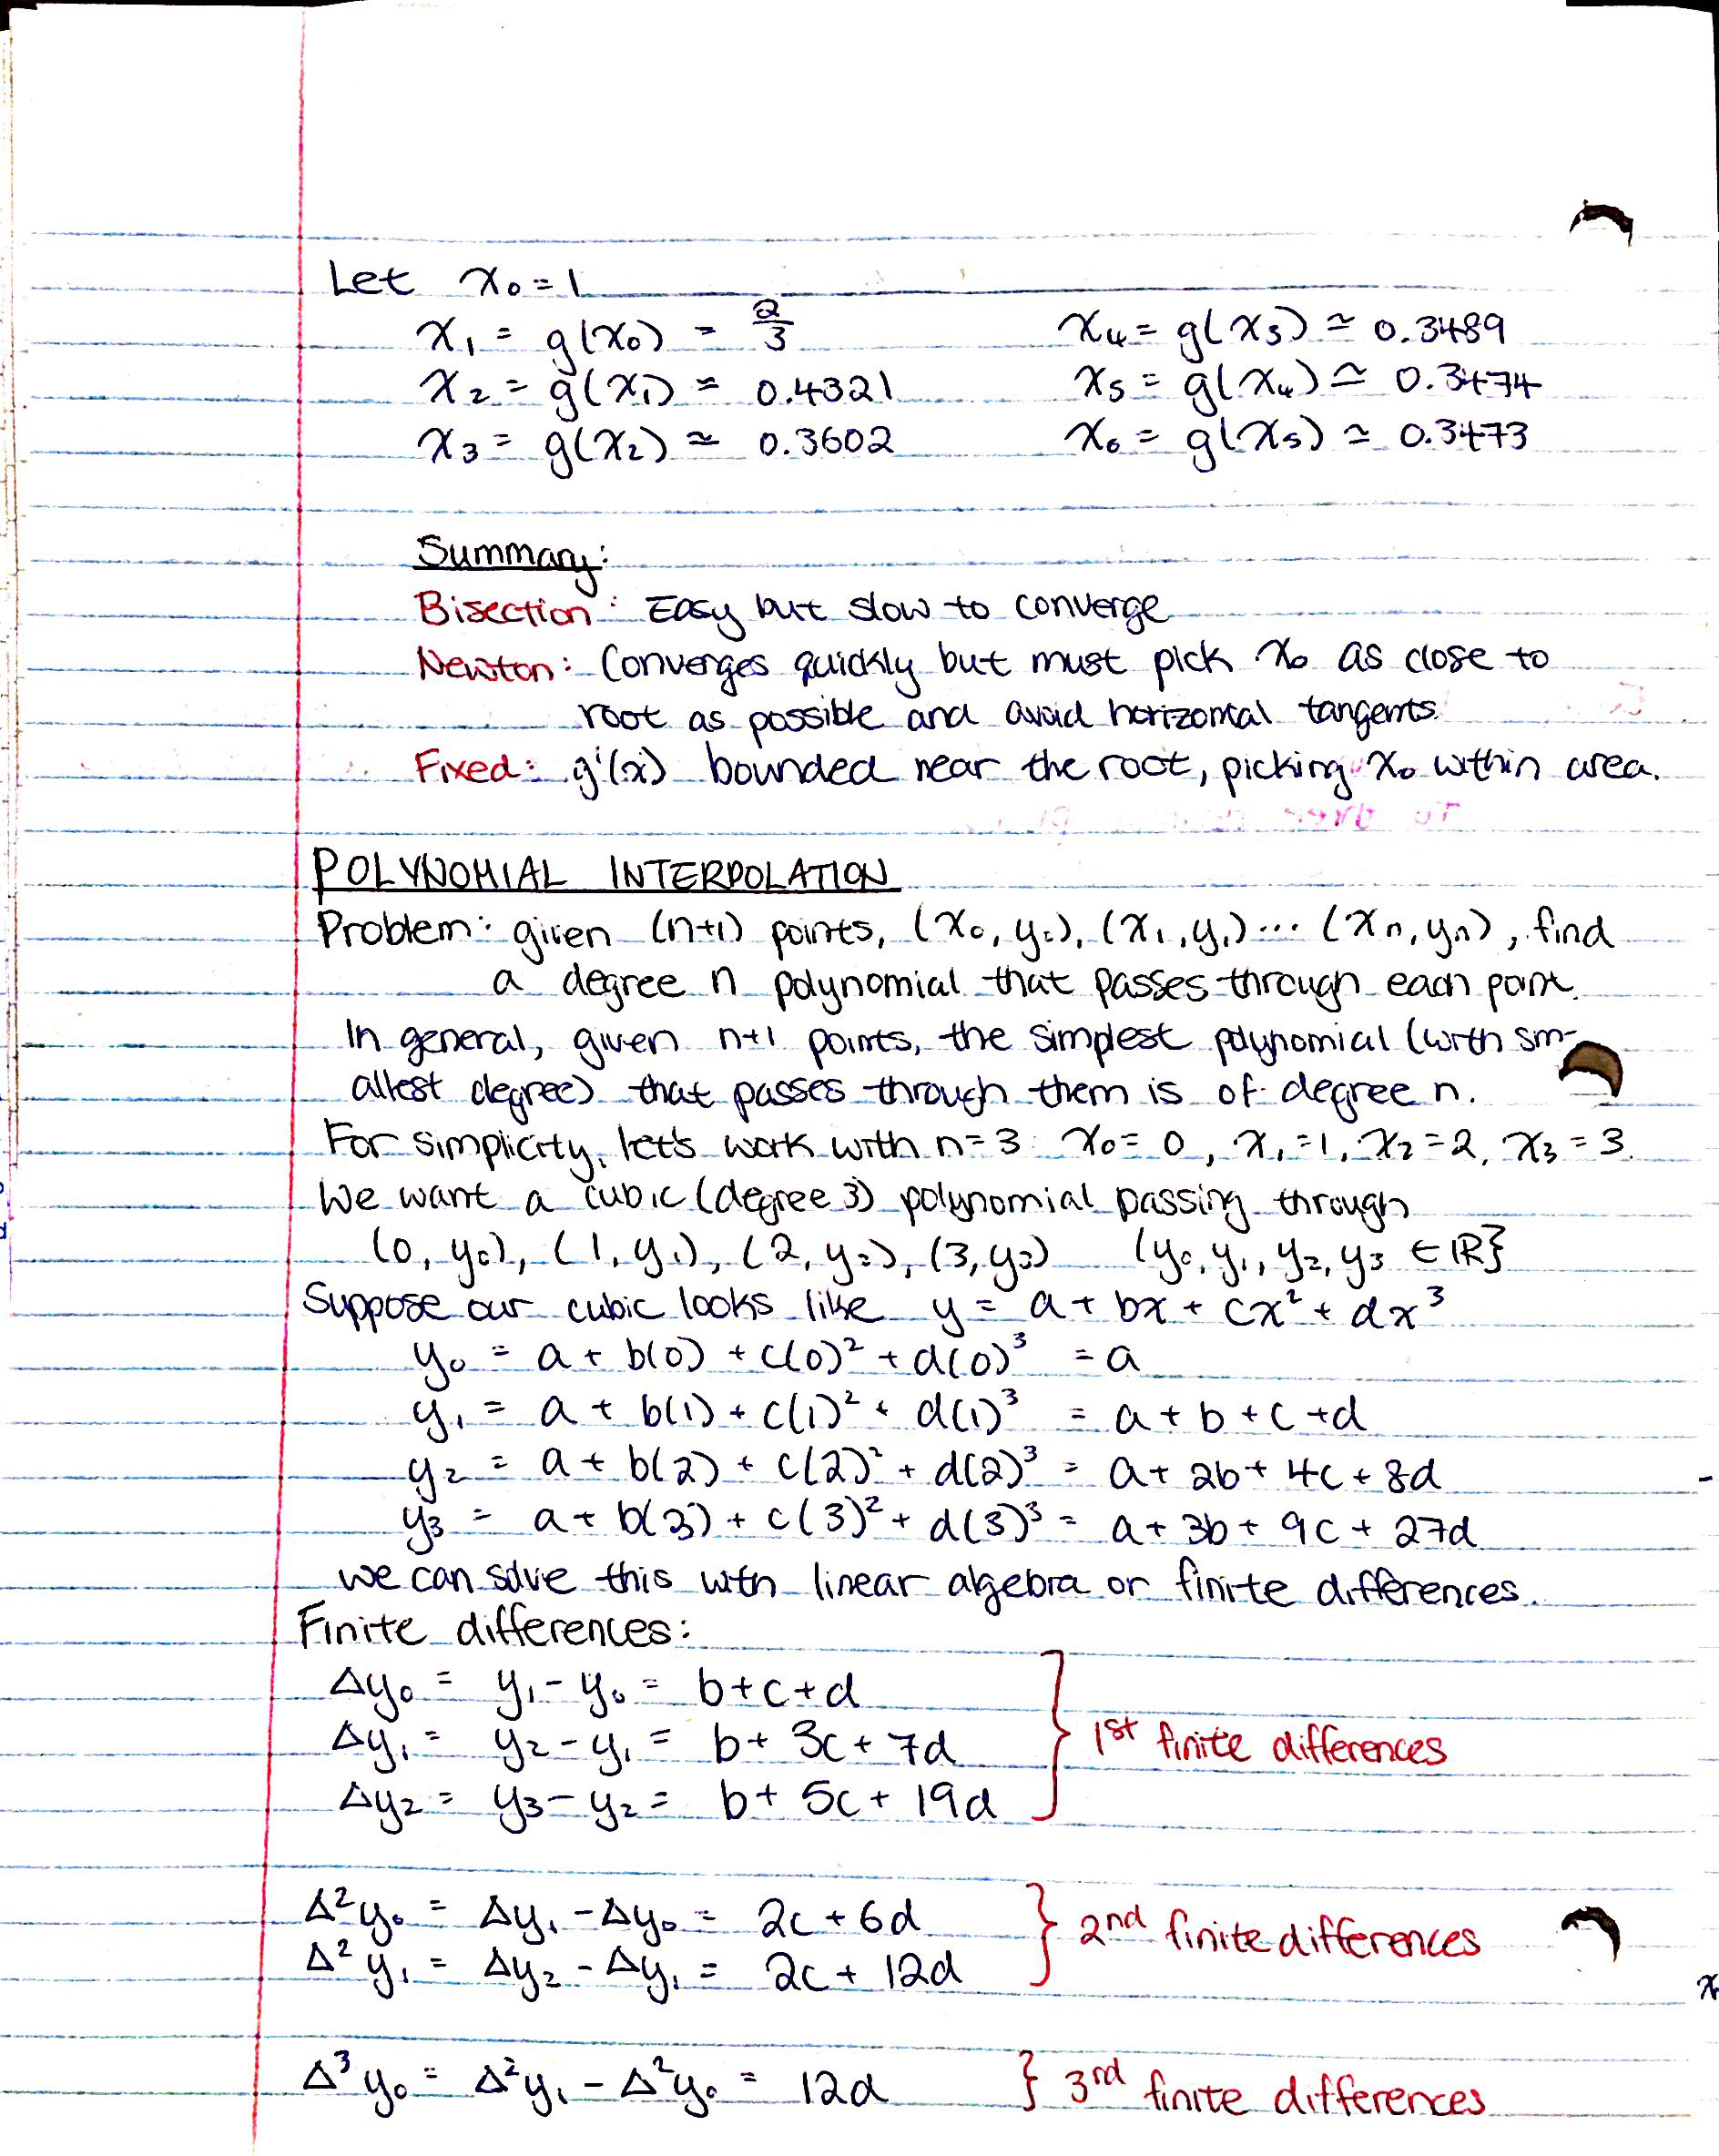 Let x₀ = 1
x₁ = g(x₀) = 2/3
x₂ = g(x₁) ≃ 0.4321
x₃ = g(x₂) ≃ 0.3602
x₄ = g(x₃) ≃ 0.3489
x₅ = g(x₄) ≃ 0.3474
x₆ = g(x₅) ≃ 0.3473
Summary:
Bisection: Easy but slow to converge
Newton: Converges quickly but must pick x₀ as close to
root as possible and avoid horizontal tangents.
Fixed: g'(x) bounded near the root, picking x₀ within area.
POLYNOMIAL INTERPOLATION
Problem: given (n+1) points, (x₀, y₀), (x₁, y₁) ... (xₙ, yₙ), find
a degree n polynomial that passes through each point.
In general, given n+1 points, the simplest polynomial (with sm-
allest degree) that passes through them is of degree n.
For simplicity, let's work with n=3: x₀ = 0, x₁ = 1, x₂ = 2, x₃ = 3.
We want a cubic (degree 3) polynomial passing through
(0, y₀), (1, y₁), (2, y₂), (3, y₃) {y₀, y₁, y₂, y₃ ∈ ℝ}
Suppose our cubic looks like y = a + bx + cx² + dx³
y₀ = a + b(0) + c(0)² + d(0)³ = a
y₁ = a + b(1) + c(1)² + d(1)³ = a + b + c + d
y₂ = a + b(2) + c(2)² + d(2)³ = a + 2b + 4c + 8d
y₃ = a + b(3) + c(3)² + d(3)³ = a + 3b + 9c + 27d
we can solve this with linear algebra or finite differences.
Finite differences:
Δy₀ = y₁ - y₀ = b + c + d
Δy₁ = y₂ - y₁ = b + 3c + 7d
Δy₂ = y₃ - y₂ = b + 5c + 19d
} 1st finite differences
Δ²y₀ = Δy₁ - Δy₀ = 2c + 6d
Δ²y₁ = Δy₂ - Δy₁ = 2c + 12d
} 2nd finite differences
Δ³y₀ = Δ²y₁ - Δ²y₀ = 12d } 3rd finite differences